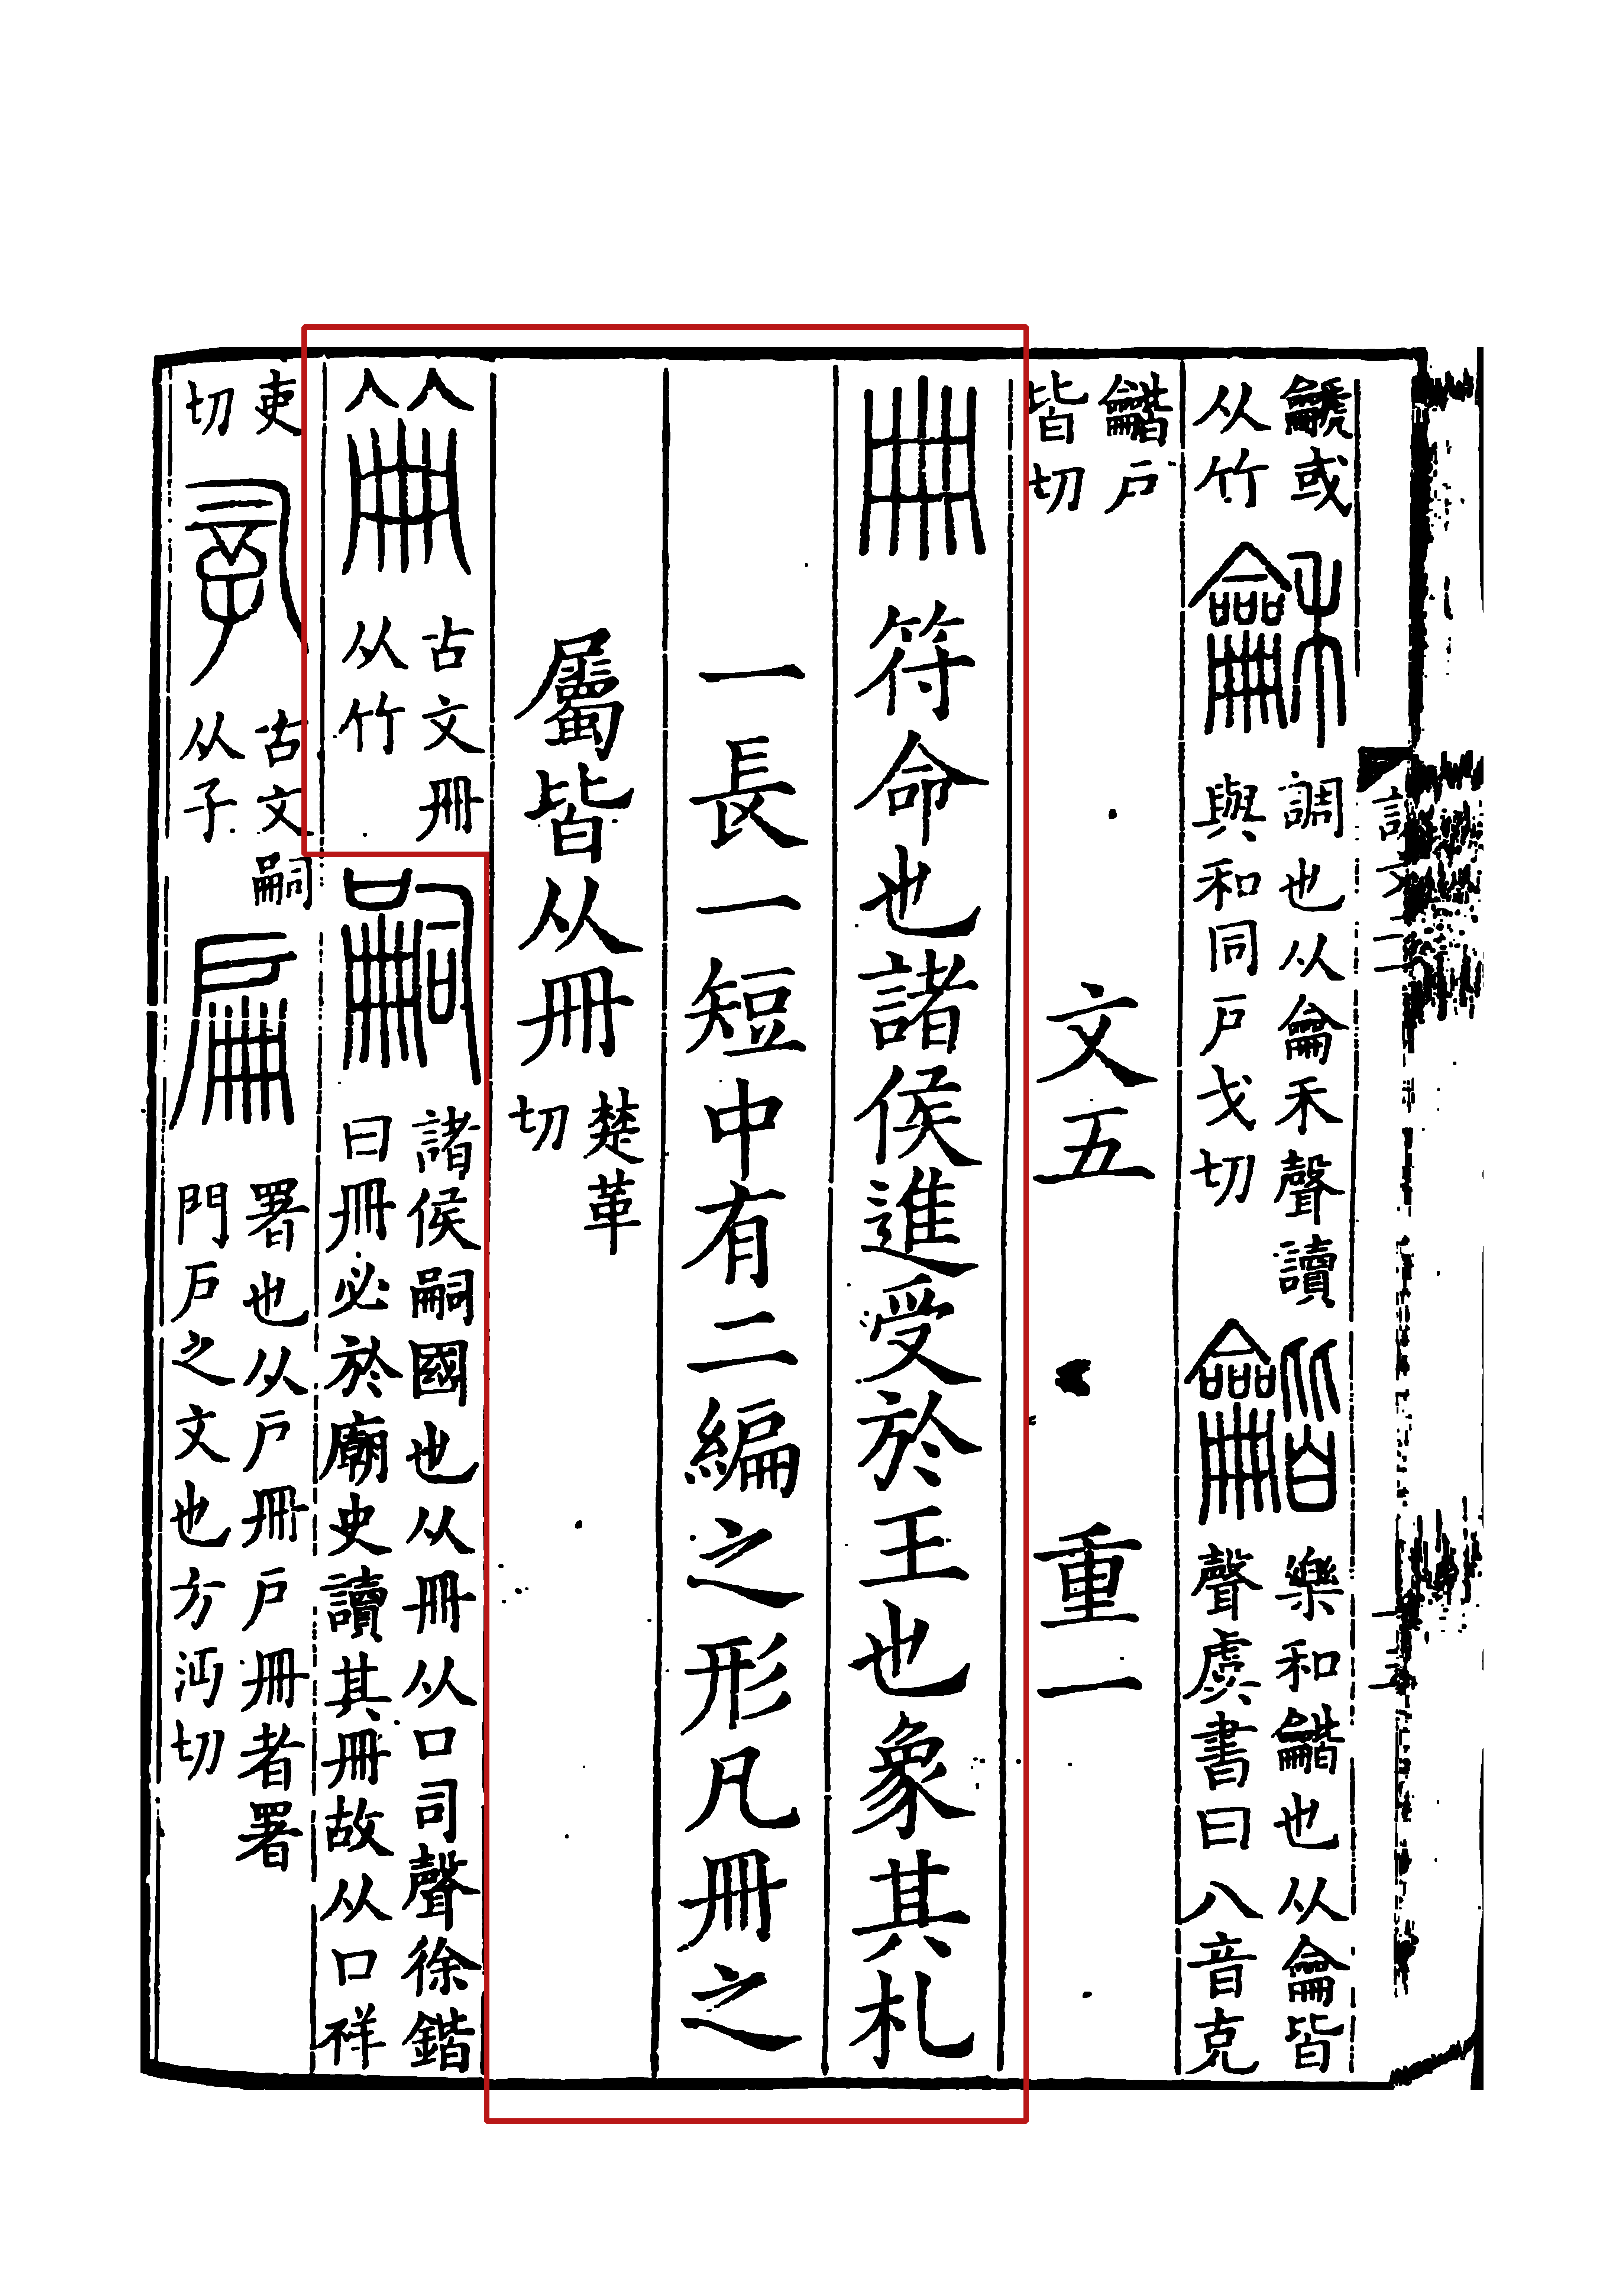 龥或
从竹
龢
調也从龠禾聲讀
與和同戶戈切
龤
樂和龤也从龠皆
聲虞書曰八音克
龤戶
皆切
文五 重一
冊 符命也諸侯進受於王也象其札
一長一短中有二編之形凡冊之
屬皆从冊
楚革
切
𠕋
古文冊
从竹
嗣
諸侯嗣國也从冊从口司聲徐鍇
曰冊必於廟史讀其冊故从口祥
吏
切
𤔲
古文嗣
从子
扁
署也从戶冊戶冊者署
門戶之文也方沔切